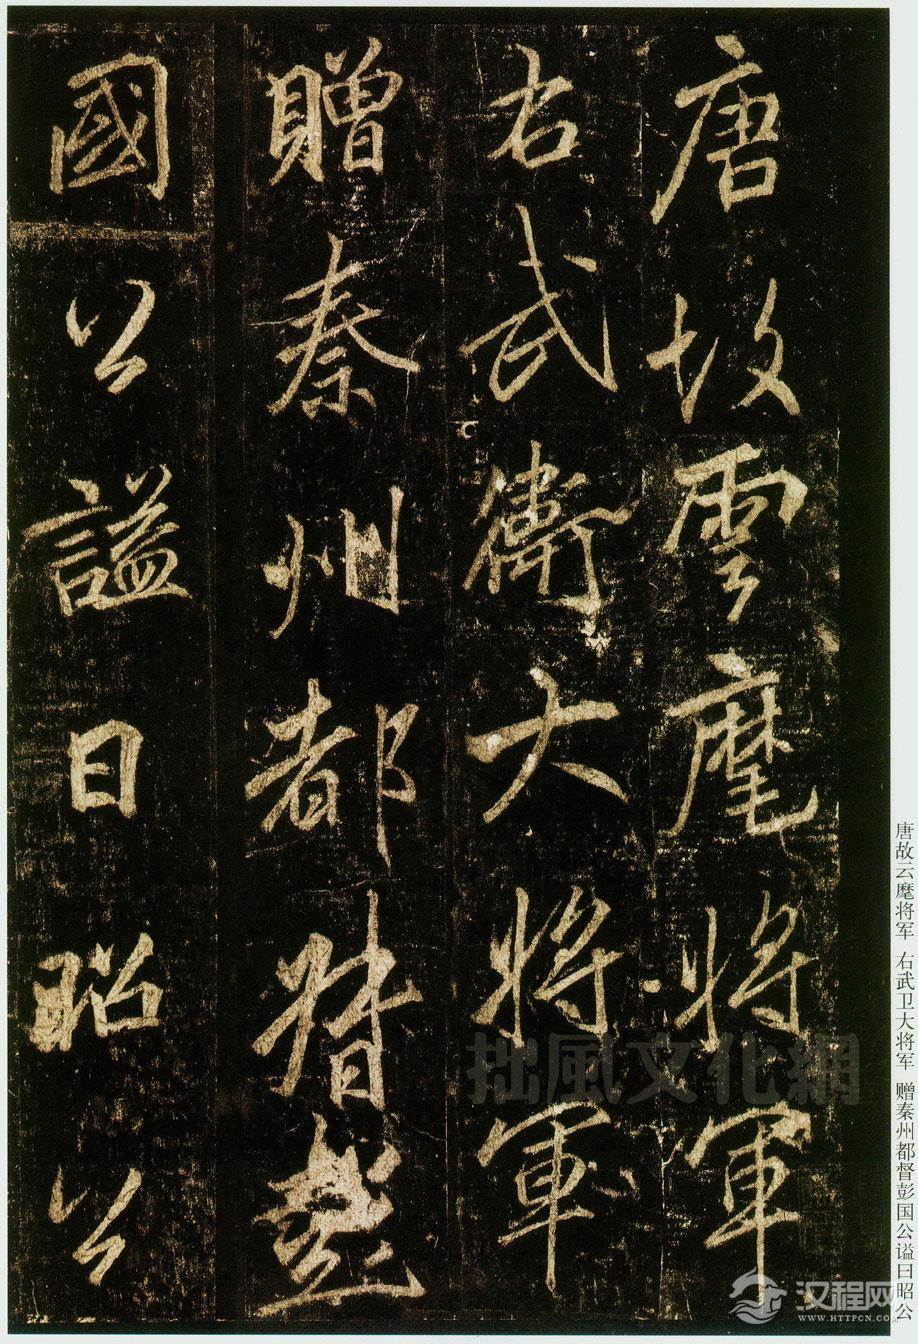 唐故雲麾將軍
右武衛大將軍
贈秦州都督彭
國公謚曰昭公
唐故云麾将军 右武卫大将军 赠秦州都督彭国公谥曰昭公
拙風文化網
汉程网
WWW.HTTPCN.COM